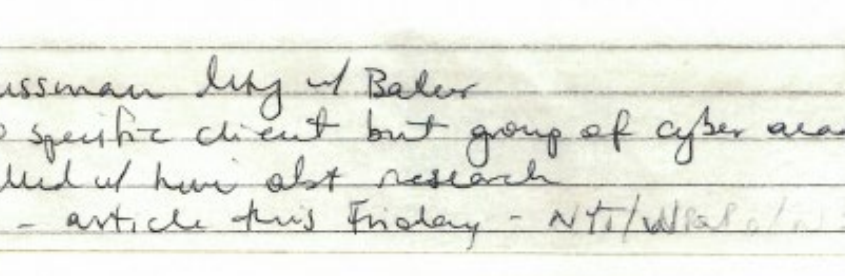 ussman Mtg w/ Baker
specific client but group of cyber acad
w/ him abt research
- article this Friday - NYT/WSJ